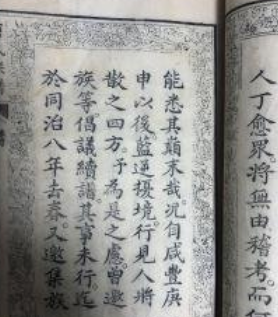 人丁愈眾將無由稽考。而何
能悉其顛末哉。況自咸豐庚
申以後藍逆擾境。行見人將
散之四方。予為是之慮。曾邀
族等倡議續譜。其事未行。迄
於同治八年去春。又邀集族